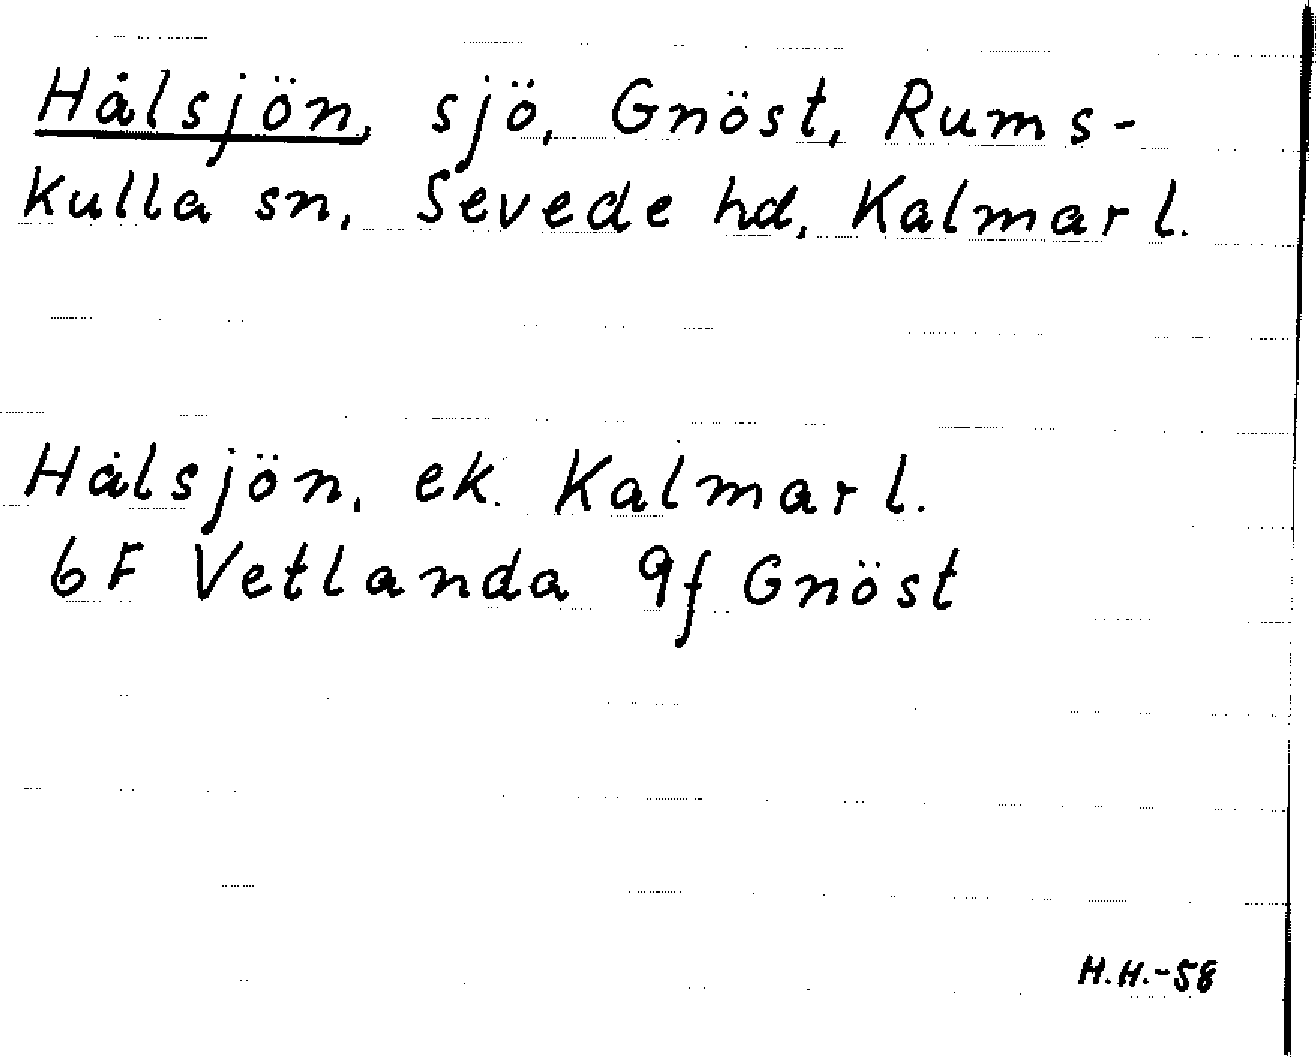 Hålsjön, sjö, Gnöst, Rums-
kulla sn, Sevede hd, Kalmar l.
Hålsjön, ek. Kalmar l.
6F Vetlanda 9f Gnöst
H.H.-58